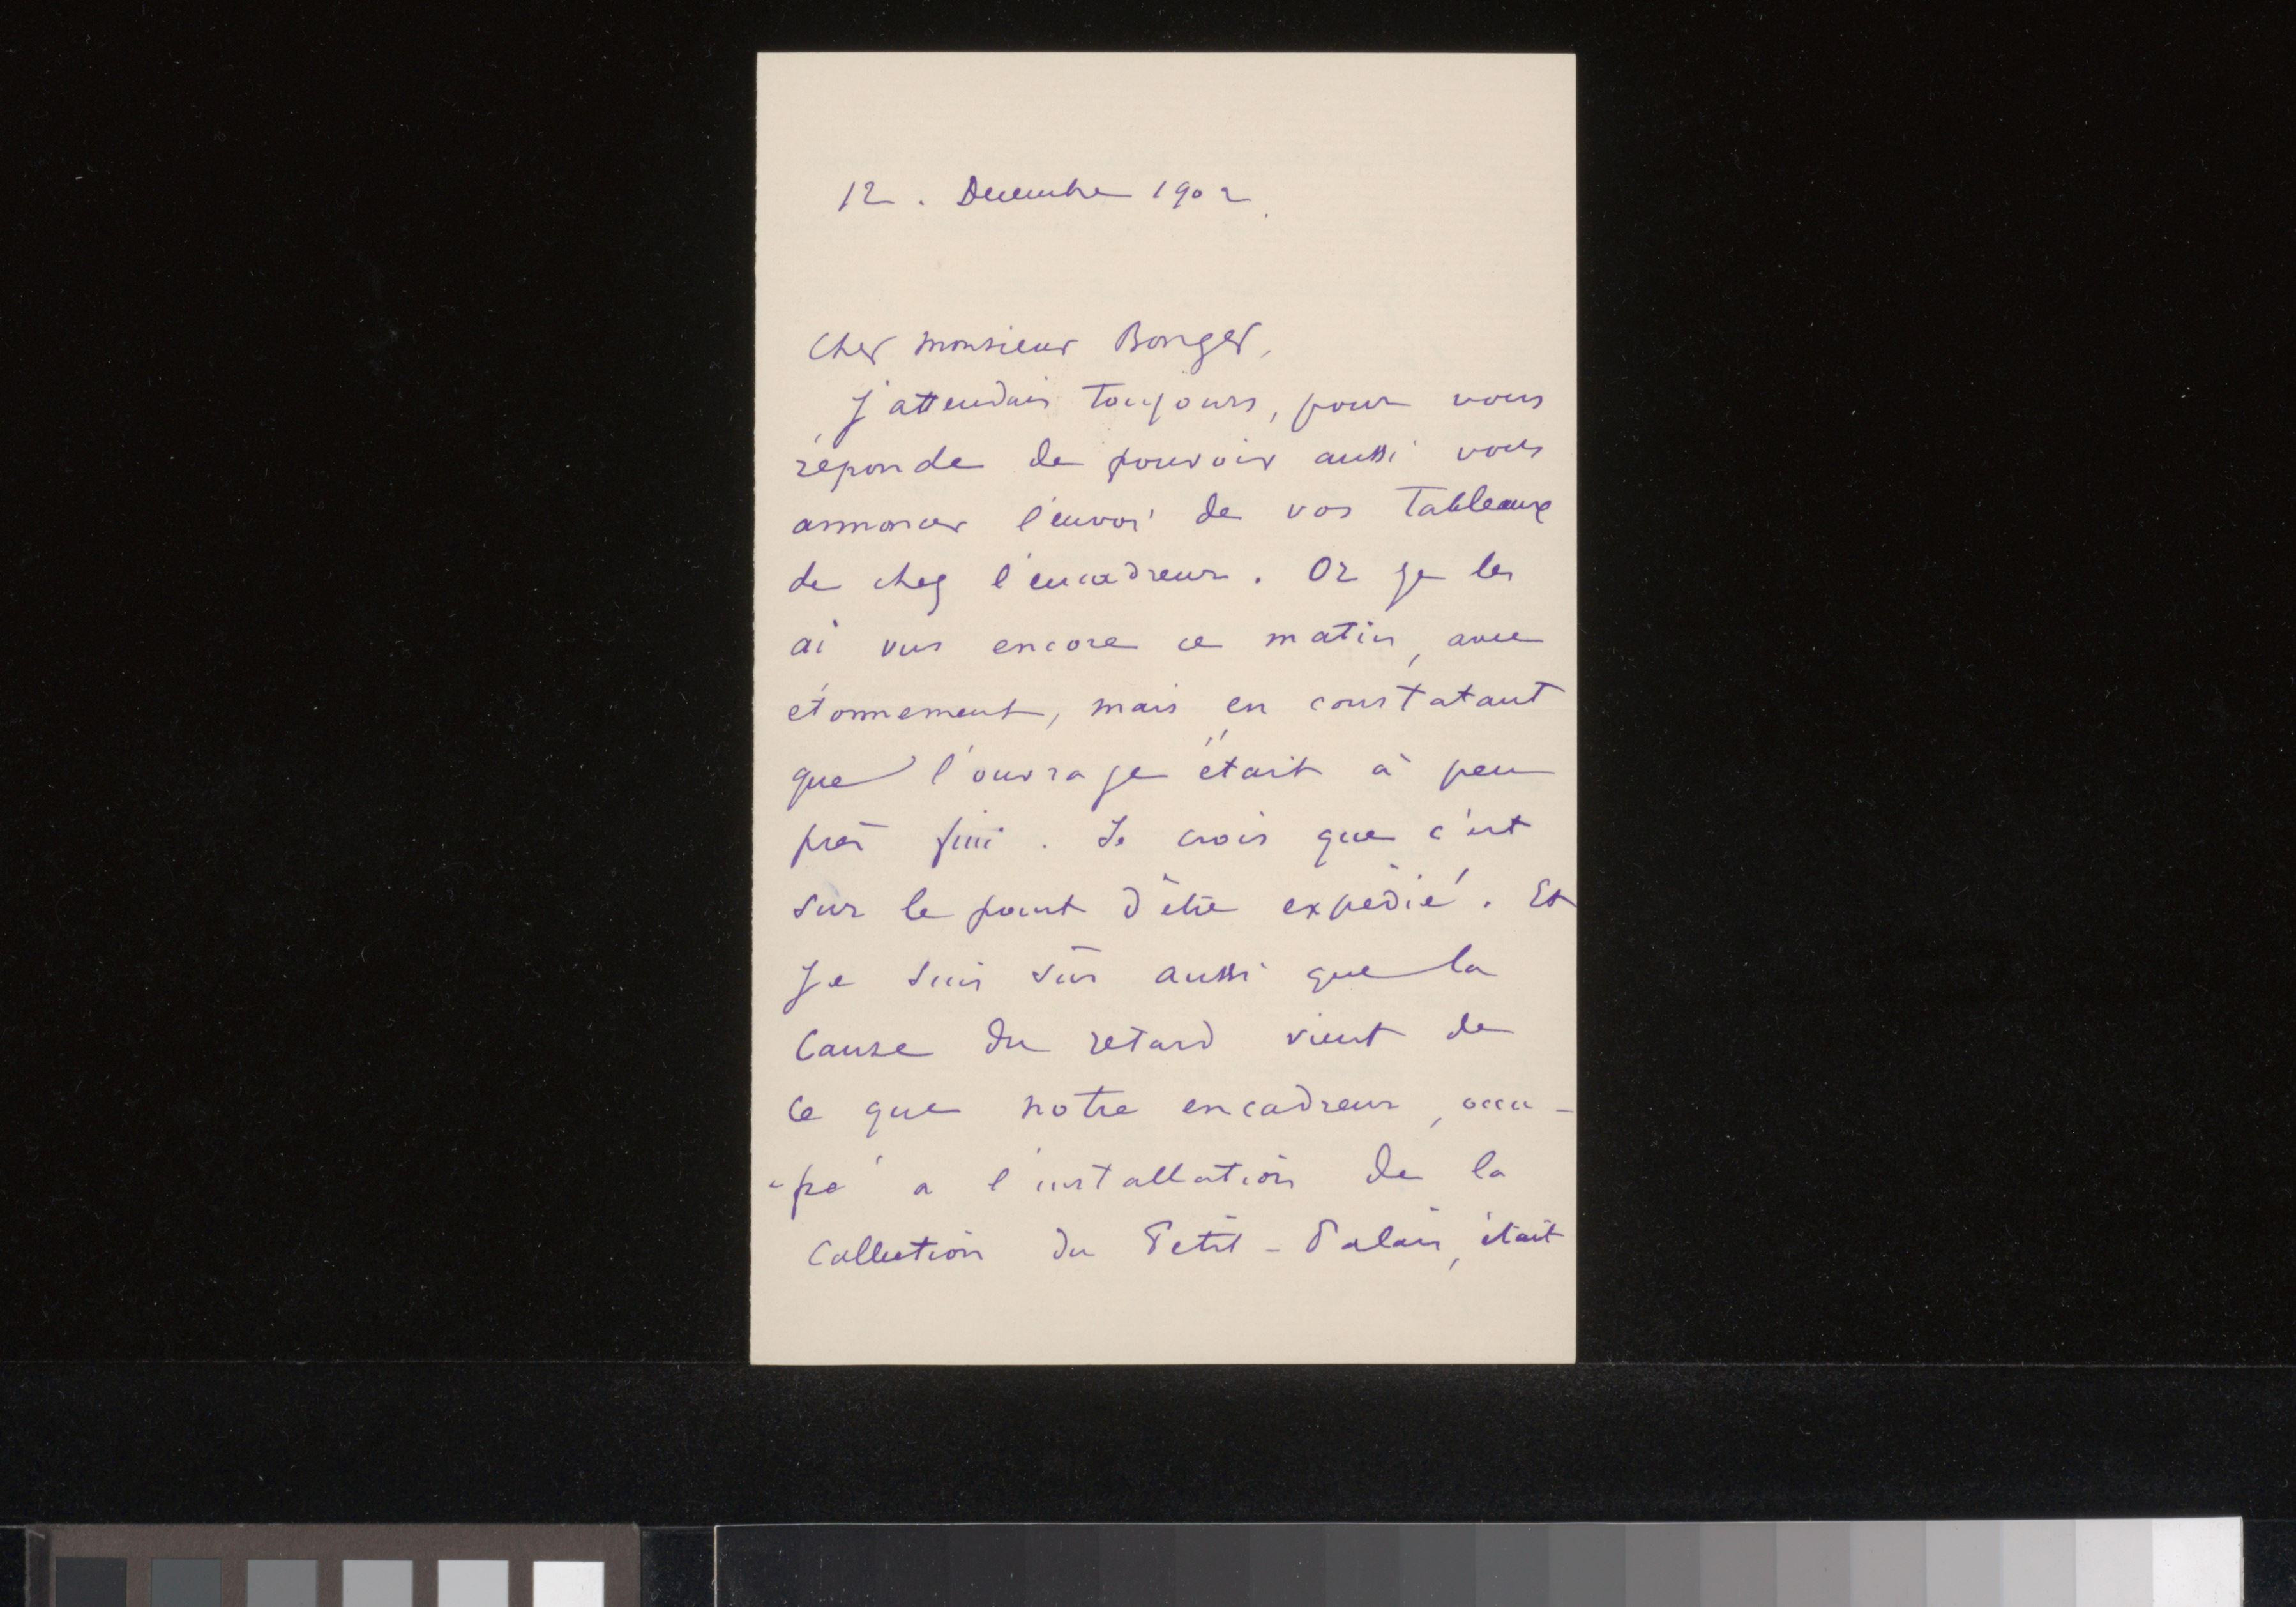 12. Decembre 1902.
Cher Monsieur Bonger,
J'attendais toujours, pour vous
réponde de pouvoir aussi vous
annoncer l'envoi de vos Tableaux
de chez l'encadreur. Or je les
ai vus encore ce matin, avec
étonnement, mais en constatant
que l'ouvrage était à peu
près fini. Je crois que c'est
sur le point d'être expédié. Et
Je suis sûr aussi que la
Cause du retard vient de
ce que notre encadreur, occu-
-pé a l'installation de la
Collection du Petit-Palais, était